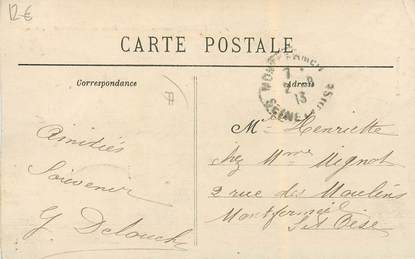 12 €
CARTE POSTALE
Correspondance
Adresse
MONTFERMEIL
7 -
2 - 8
13
SEINE-
OISE
77
Amitiés
Souvenir
G Delouche
Mlle Henriette
chez Mme Mignot
2 rue des Moulins
Montfermeil
S et Oise